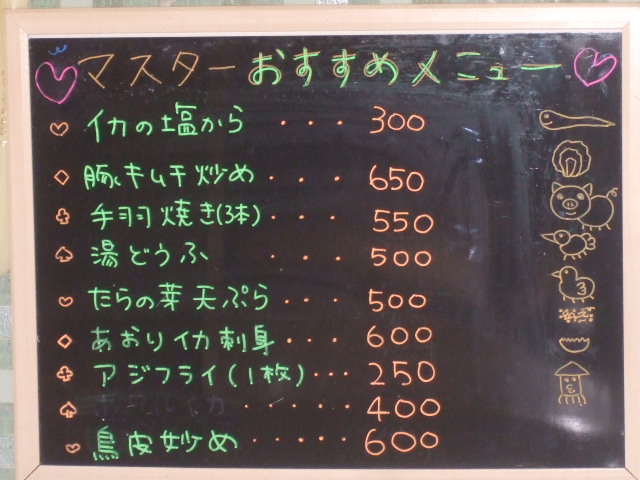 マスターおすすめメニュー
イカの塩から ・・・ 300
豚キムチ炒め・・・ 650
手羽焼き(3本)・・・ 550
湯どうふ ・・・ 500
たらの芽天ぷら・・・ 500
あおりイカ刺身・・・ 600
アジフライ(1枚)・・・ 250
ホタルイカ ・・・・・ 400
鳥皮炒め ・・・・・ 600